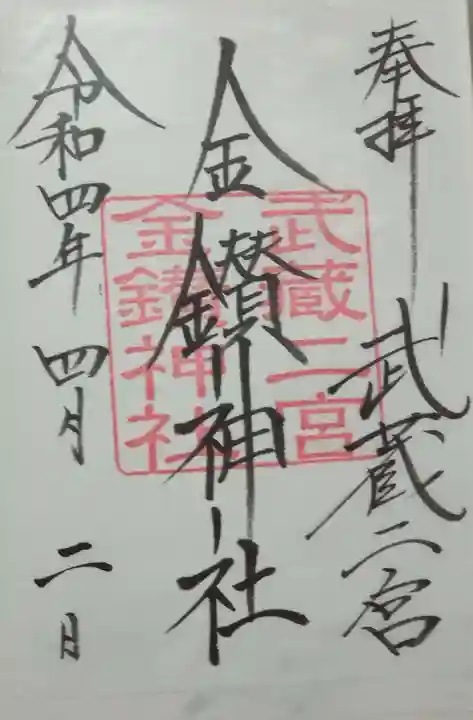 奉拝
武蔵二宮
金鑚神社
令和四年四月二日
武蔵二宮
金鑚神社